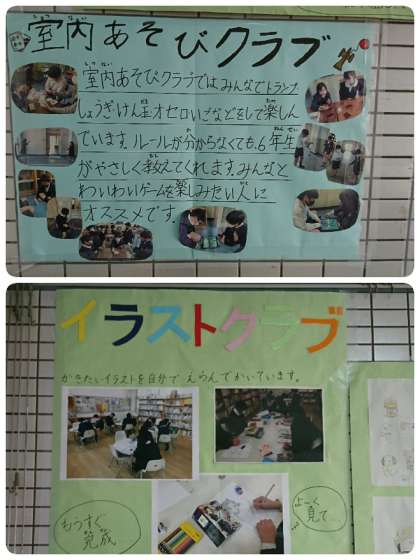 室内あそびクラブ
室内あそびクラブではみんなでトランプ
しょうぎけん玉オセロいごなどをして楽しん
でいます。ルールが分からなくても、6年生
がやさしく教えてくれます。みんなと
わいわいゲームを楽しみたい人に
オススメです。
イラストクラブ
かきたいイラストを自分でえらんでかいています。
もうすぐ
完成…
よーく
見て…